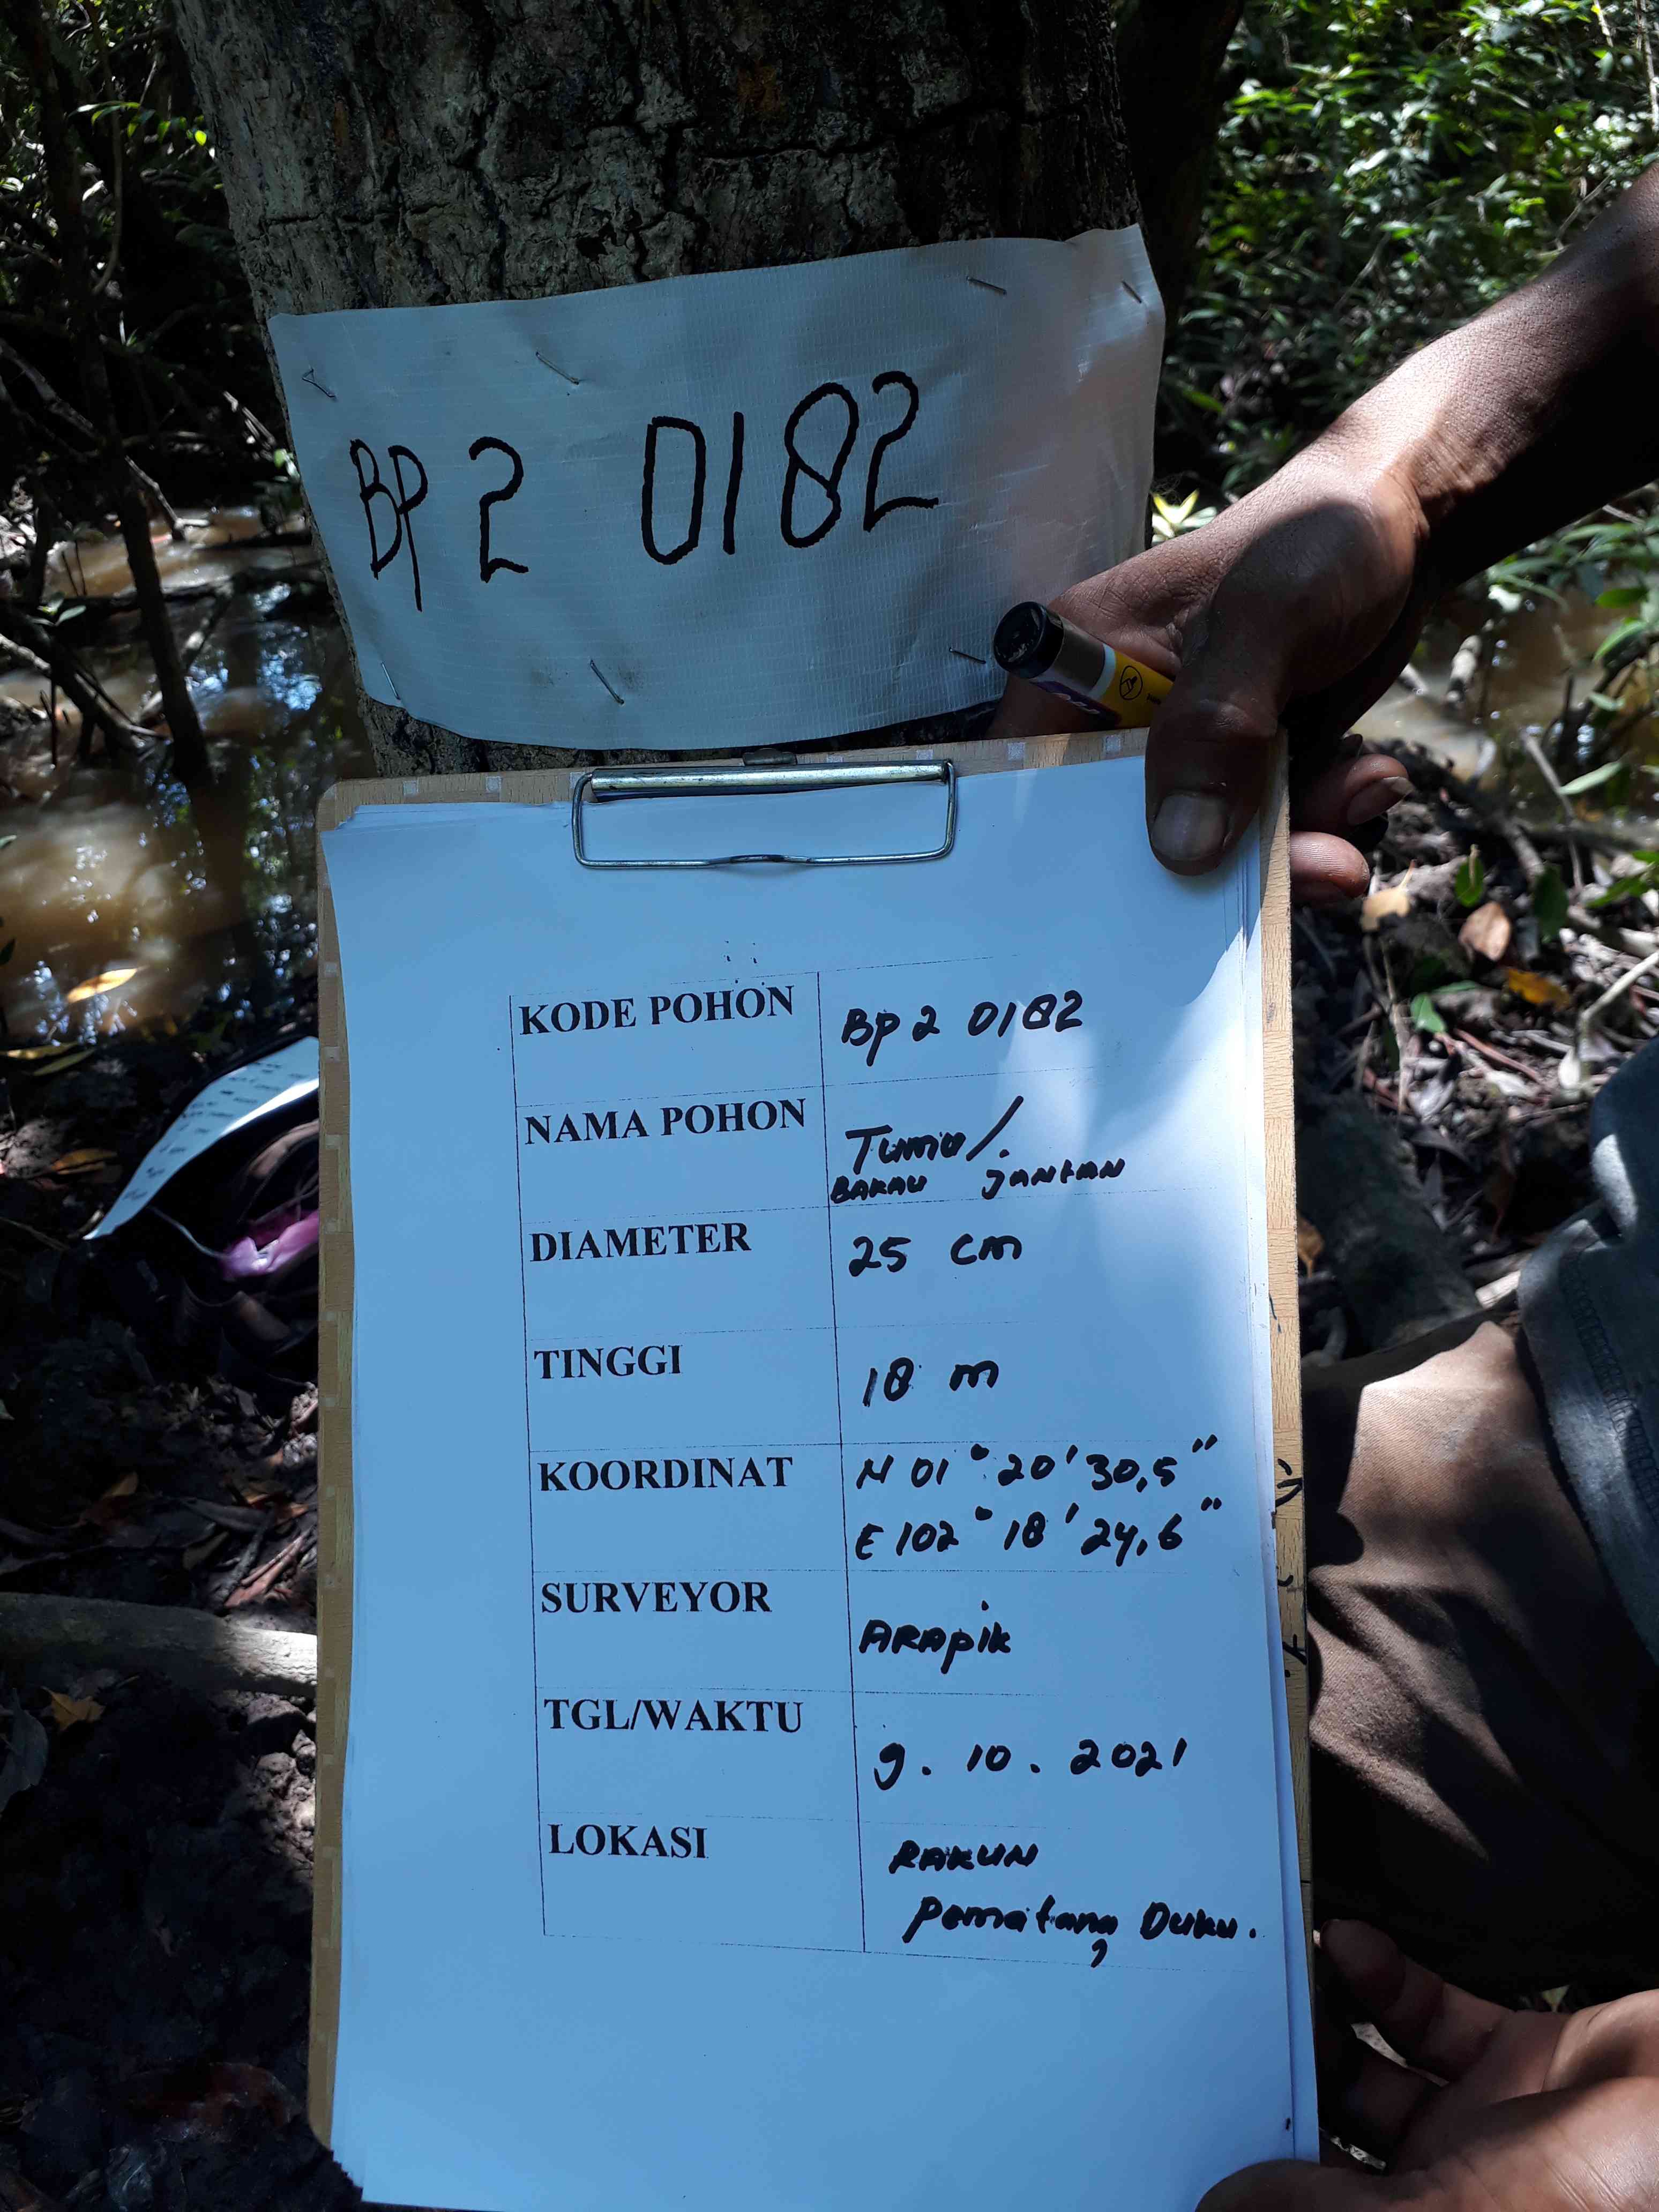 BP 2 0182
KODE POHON Bp 2 0182
NAMA POHON Tumu/.
BAKAU JANTAN
DIAMETER 25 cm
TINGGI 18 m
KOORDINAT N 01° 20' 30,5"
E 102° 18' 24,6"
SURVEYOR ARApik
TGL/WAKTU 9. 10. 2021
LOKASI RAKUN
Pematang Duku.